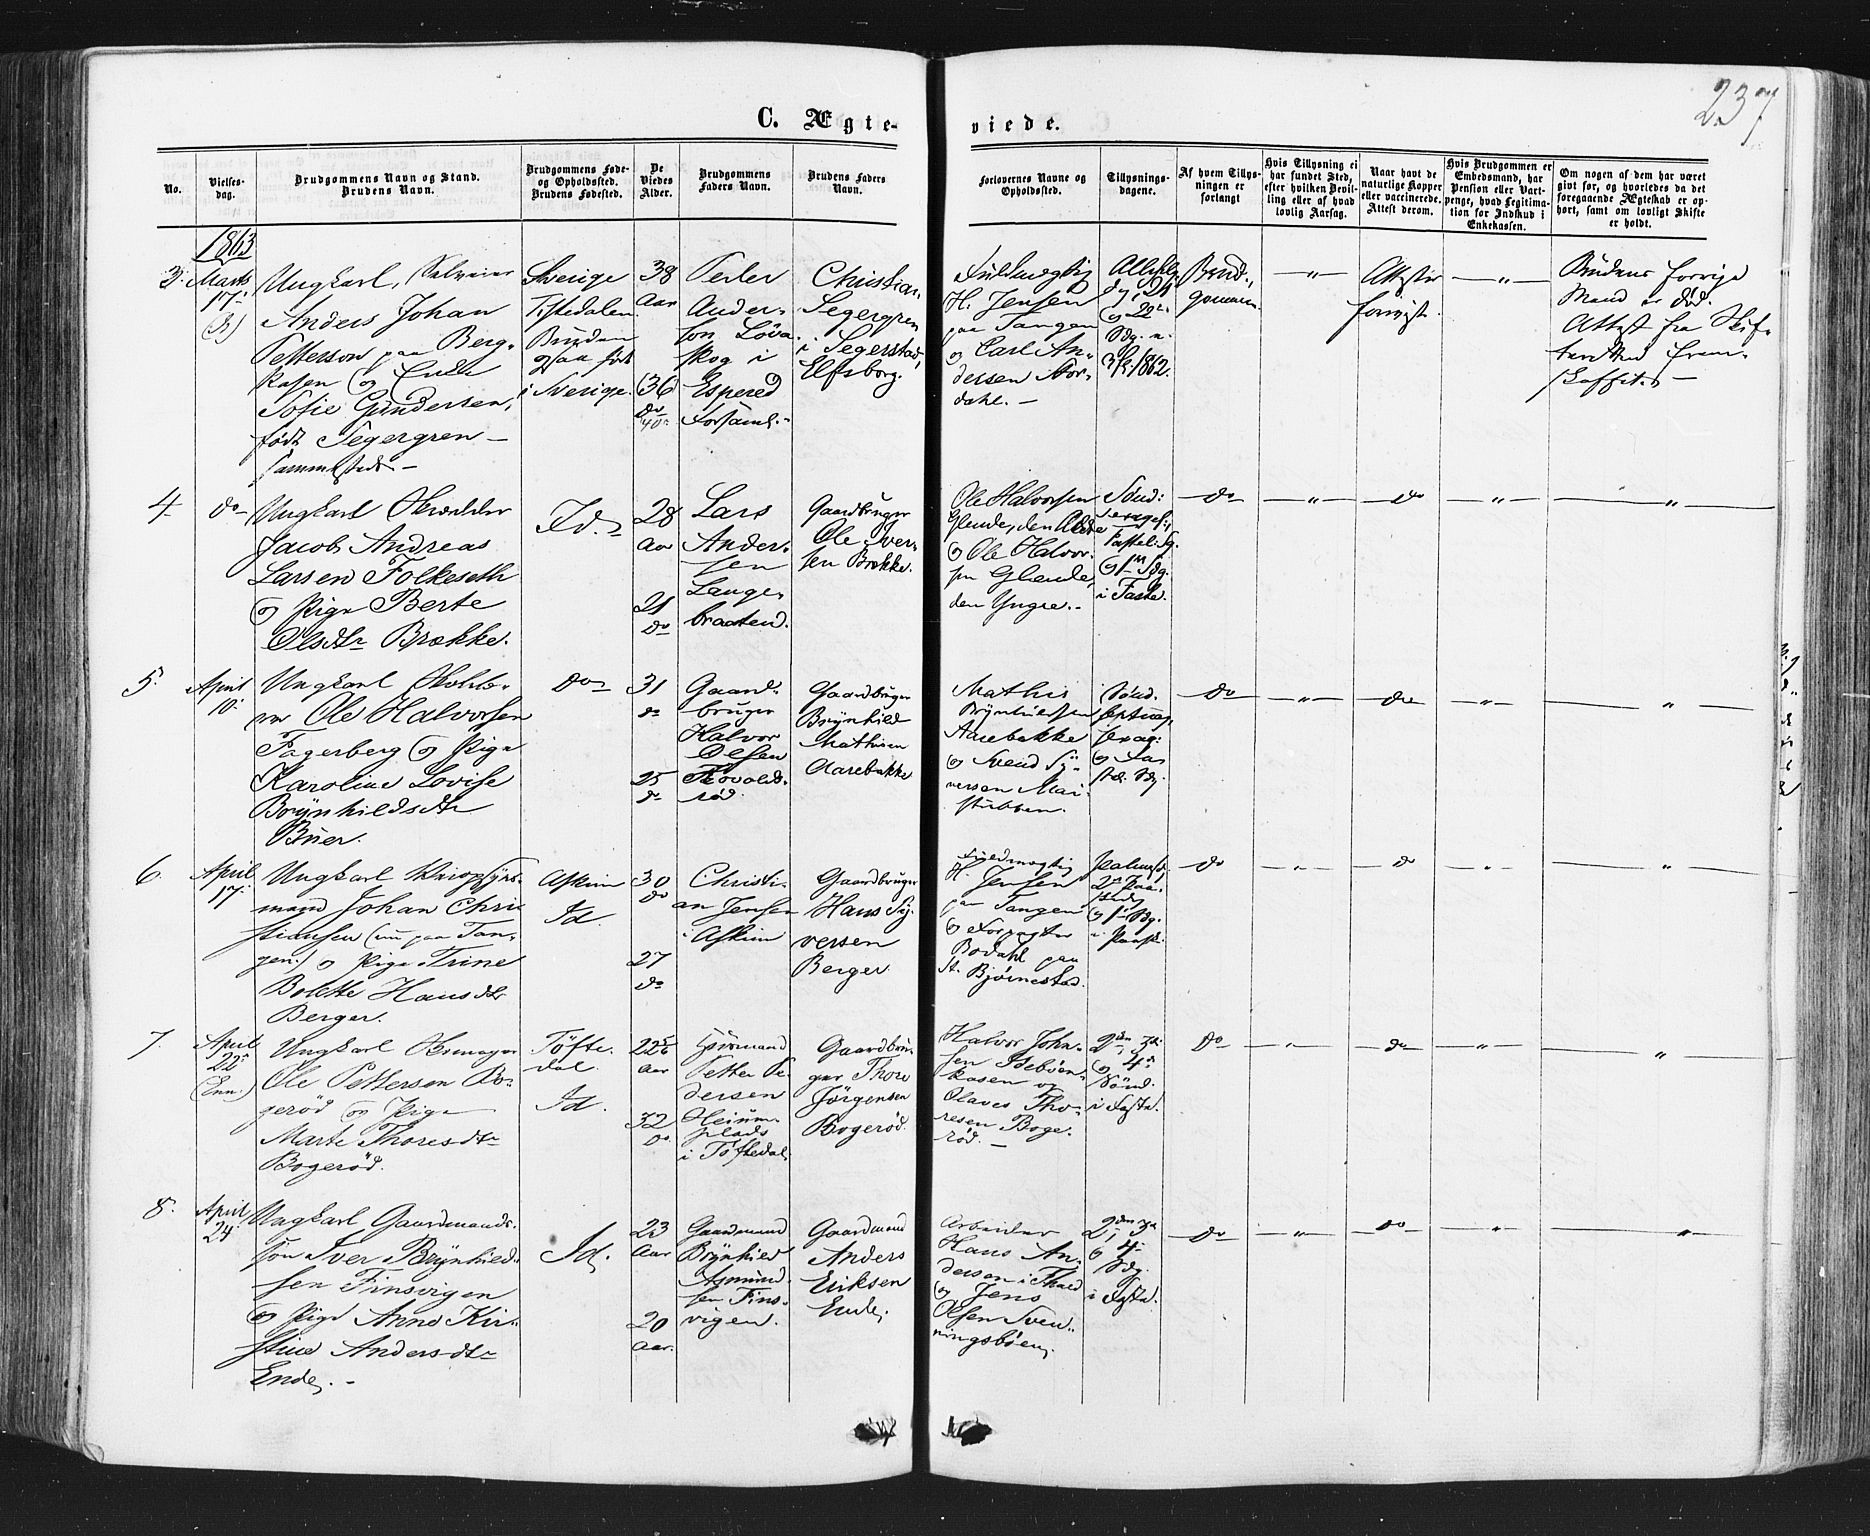 237
C. Ægte-
viede.
No.
Vielses-
dag.
Brudgommens Navn og Stand.
Brudens Navn.
Brudgommens Føde-
og Opholdssted.
Brudens Fødested.
De
Viedes
Alder.
Brudgommens
Faders Navn.
Brudens Faders
Navn.
Forlovernes Navne og
Opholdssted.
Tillysnings-
dagene.
Af hvem Tillys-
ningen er
forlangt
Hvis Tillysning ei
har fundet Sted,
efter hvilken Bevil-
ling eller af hvad
lovlig Aarsag.
Naar havt de
naturlige Kopper
eller vaccinerede.
Attest derom.
Hvis Brudgommen er
Embedsmand, har
Pension eller Vart-
penge, hvad Legitima-
tion for Indskud i
Enkekassen.
Om nogen af dem har været
gift før, og hvorledes da det
foregaaende Ægteskab er op-
hørt, samt om lovligt Skifte
er holdt.
1863
3.
Marts
17.
Ungkarl,
Anders Johan
Petterson paa Berg-
kasen og Enke
Sofie Gundersen,
født Segergren
sammesteds
Sverige
Tistedalen
Bruden
ogsaa født
i Sverige.
38
Aar
36
do
Peter
Anders-
son Löva-
skog i
Espered
Forsaml.
Christian
Segergren
i Segerstad,
Elfsborg.
Fuldmægtig
H. Jensen
paa Tangen
og Carl An-
dersen Nor-
dahl.
1862.
Brud-
gommen
"
Attester
foreviist.
"
Brudens forrige
Mand er død.
Attest fra Skif-
teretten frem-
skaffet
4.
do
Ungkarl Skrædder
Jacob Andreas
Larsen Folkeseth
og Pige Berte
Olsdtr Brække.
Id.
28
Aar
21
do
Lars
Ander-
sen
Lange-
braaten.
Gaardbruger
Ole Iver-
sen Brække.
Ole Halvorsen
Glende, den Ældre
og Ole Halvor-
sen Glende,
den Yngre.
i Faste.
do
"
do
"
"
5.
April
10.
Ungkarl
Ole Halvorsen
Fagerberg og Pige
Karoline Lovise
Brynhildsdtr
Buer.
do
31
do
25
do
Gaard-
bruger
Halvor
Olsen
rød.
Gaardbruger
Brynhild
Mathisen
Aarebakke
Mathis
Brynhildsen
Aarebakke
og Svend Sy-
versen Mai-
stubben.
do
"
do
"
"
6.
April
17.
Ungkarl
mand Johan Chri-
stiansen (nu paa Tan-
gen) og Pige Trine
Bolette Hansdtr
Berger.
Askim
Id.
30
do
27
do
Christi-
an Jensen
i Askim
Gaardbruger
Hans Sy-
versen
Berger
Fuldmægtig
H. Jensen
paa Tangen
og Forpagter
Bodahl paa
St. Bjørnestad.
do
"
do
"
"
7.
April
22.
Ungkarl
Ole Pettersen Bo-
gerød og Pige
Marte Thoresdtr
Bogerød.
Töfte-
dal.
Id.
Aar
32
do.
Petter Pe-
dersen
plads
i Töftedal
Gaardbru-
ger Thore
Jörgensen
Bogerød.
Halvor John-
sen Idebøen-
kasen og
Olaves Tho-
resen Boge-
rød.
i Faste.
do
"
do
"
"
8.
April
24.
Ungkarl Gaardmands-
søn Iver Brynhild-
sen Finsvigen
og Pige Anne Kir-
stine Andersdtr
Ende.
Id.
23
Aar
20
Aar.
Gaardmand
Brynhild
Asmund-
sen Fins-
vigen.
Gaardmand
Anders
Eriksen
Ende.
Arbeider
Hans An-
dersen i Thold
og Jens
Olsen Sven-
ningsbøen.
i Faste.
do
"
do
"
"